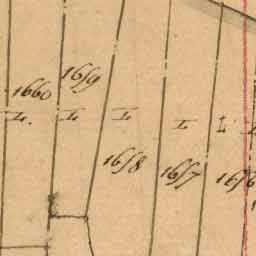 1660 1659
L. L L L L
1658 1657 1656